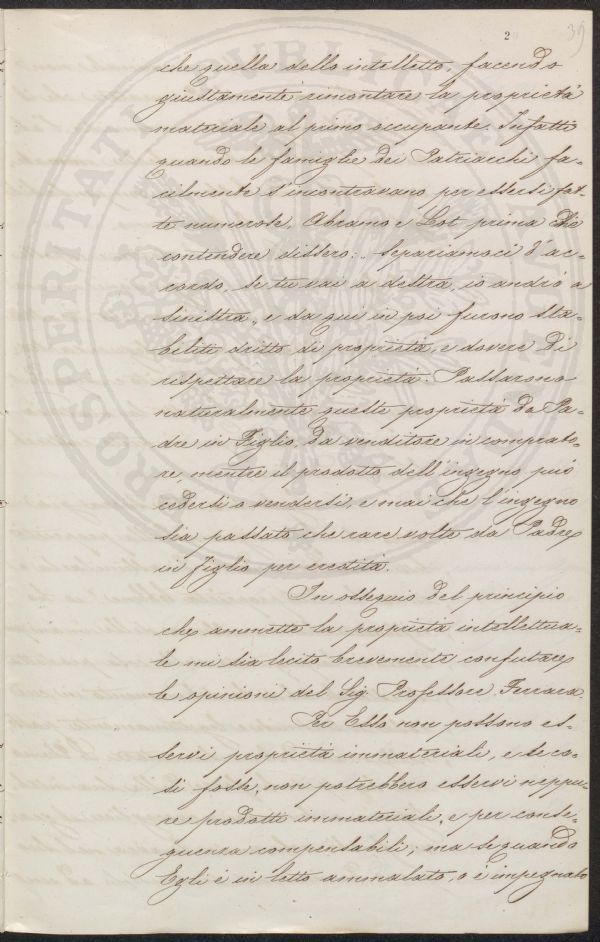 2
39
che quella dello intelletto, facendo
giustamente rimontare la proprietà
materiale al primo occupante. Infatti
quando le famiglie dei Patriarchi fa-
cilmente s'incontravano per essersi fat-
te numerose, Abramo e Lot prima di
contendere dissero: „ Separiamoci d'ac-
cordo, se tu vai a destra, io andrò a
sinistra „ e da qui in poi furono sta-
biliti dritto di proprietà, e dovere di
rispettare la proprietà. Passarono
naturalmente queste proprietà da Pa-
dre in Figlio, da venditore in comprato-
re, mentre il prodotto dell'ingegno può
cedersi o vendersi, e mai che l'ingegno
sia passato che rare volte da Padre
in figlio per eredità.
In ossequio del principio
che ammette la proprietà intellettua-
le mi sia lecito brevemente confutare
le opinioni del Sig. Professore Ferrara.
Per Esso non possono es-
servi proprietà immateriali, e se co-
sì fosse, non potrebbero esservi neppu-
re prodotti immateriali, e per conse-
guenza compensabili; ma se quando
Egli è in letto ammalato, o è impegnato
PROSPERITATI PUBLICAE